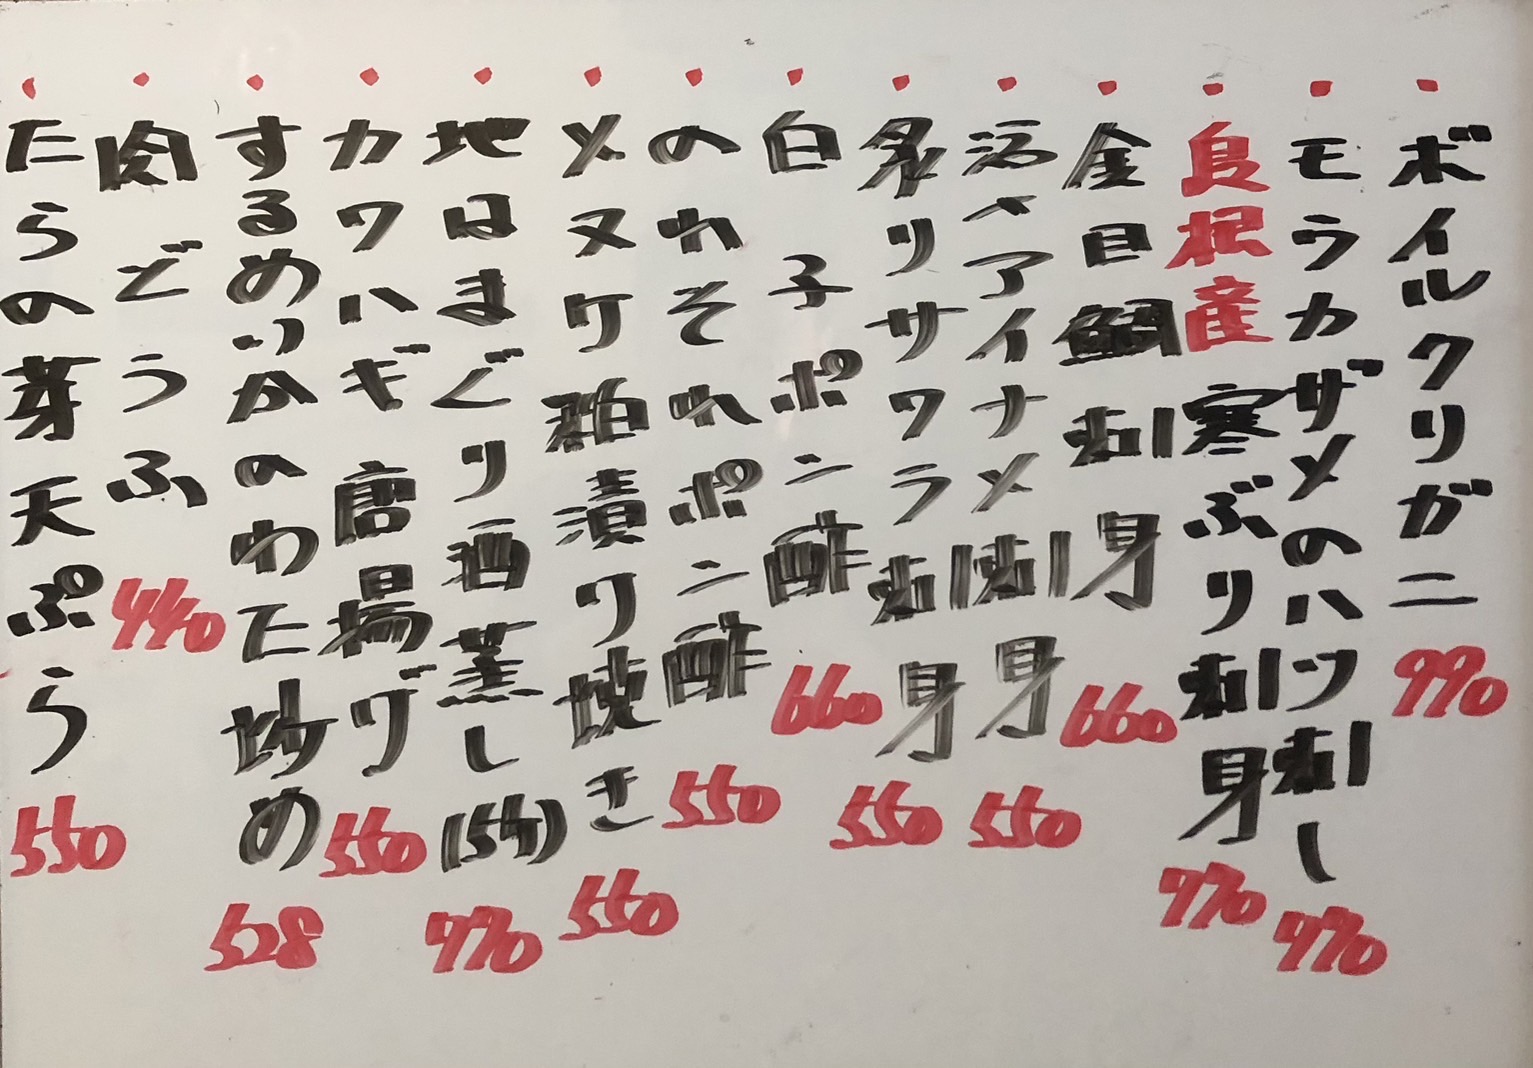 ・ボイルクリガニ 990
・モウカザメのハツ刺し 770
・島根産寒ぶり刺身 770
・金目鯛刺身 660
・活〆アイナメ刺身 550
・炙りサワラ刺身 550
・白子ポン酢 660
・のれそれポン酢 550
・メヌケ粕漬け焼き 550
・地はまぐり酒蒸し(5ヶ) 770
・カワハギ唐揚げ 550
・するめいかのわた炒め 528
・肉どうふ 440
・たらの芽天ぷら 550